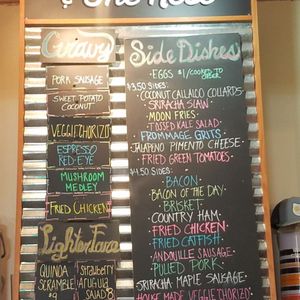 Gravy
PORK SAUSAGE
SWEET POTATO
COCONUT
VEGGIE THORIZO
ESPRESSO
RED-EYE
MUSHROOM
MEDLEY
FRIED CHICKEN
Lighter Fare
QUINOA
SCRAMBLE
$9
Strawberry
Arugula
SALAD 8
Side Dishes
EGGS $1/COOKED TO
ORDER
$3.50 SIDES:
COCONUT CALLALOO COLLARDS
SRIRACHA SLAW
MOON FRIES
TOSSED KALE SALAD
FROMMAGE GRITS
JALAPENO PIMENTO CHEESE
FRIED GREEN TOMATOES
$4.50 SIDES:
BACON
BACON OF THE DAY
BRISKET
COUNTRY HAM
FRIED CHICKEN
FRIED CATFISH
ANDOUILLE SAUSAGE
PULLED PORK
SRIRACHA MAPLE SAUSAGE
HOUSE MADE VEGGIE THORIZO